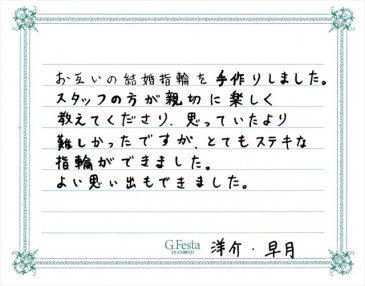 お互いの結婚指輪を手作りしました。
スタッフの方が親切に楽しく
教えてくださり、思っていたより
難しかったですが、とてもステキな
指輪ができました。
よい思い出もできました。
G.Festa
DIAMOND
洋介・早月